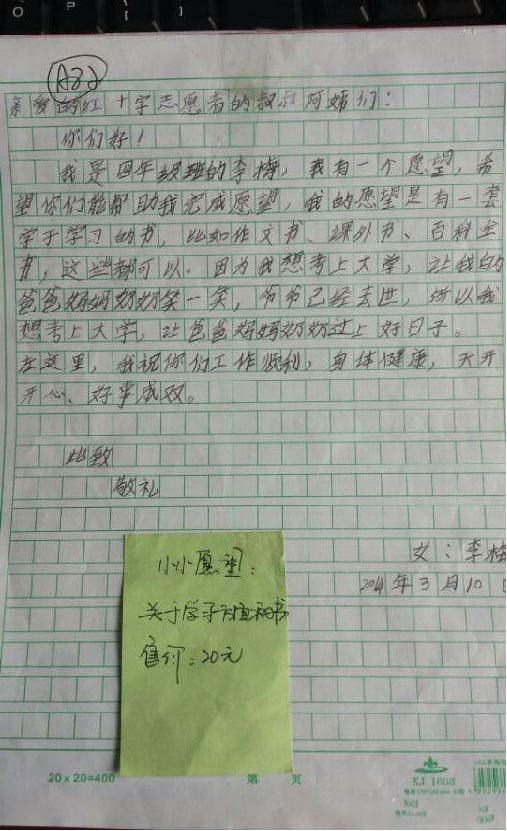 A82
亲爱的红十字志愿者的叔叔阿姨们：
你们好！
我是四年级班的李梅，我有一个愿望，希
望你们能帮助我完成愿望，我的愿望是有一套
学于学习的书，比如作文书、课外书、百科全
书，这些都可以。因为我想考上大学，让我的
爸爸妈妈奶奶笑一笑，爷爷已经去世，所以我
想考上大学，让爸爸妈妈奶奶过上好日子。
在这里，我祝你们工作顺利，身体健康，天开
开心、好事成双。
此致
敬礼
女：李梅
2014年3月10
小小愿望：
关于学习的书
售价：20元
20×20=400
第 页
KJ 1603